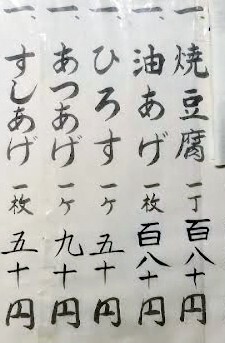 一、焼豆腐 一丁 百八十円
一、油あげ 一枚 百八十円
一、ひろす 一ケ 五十円
一、あつあげ 一ケ 九十円
一、すしあげ 一枚 五十円